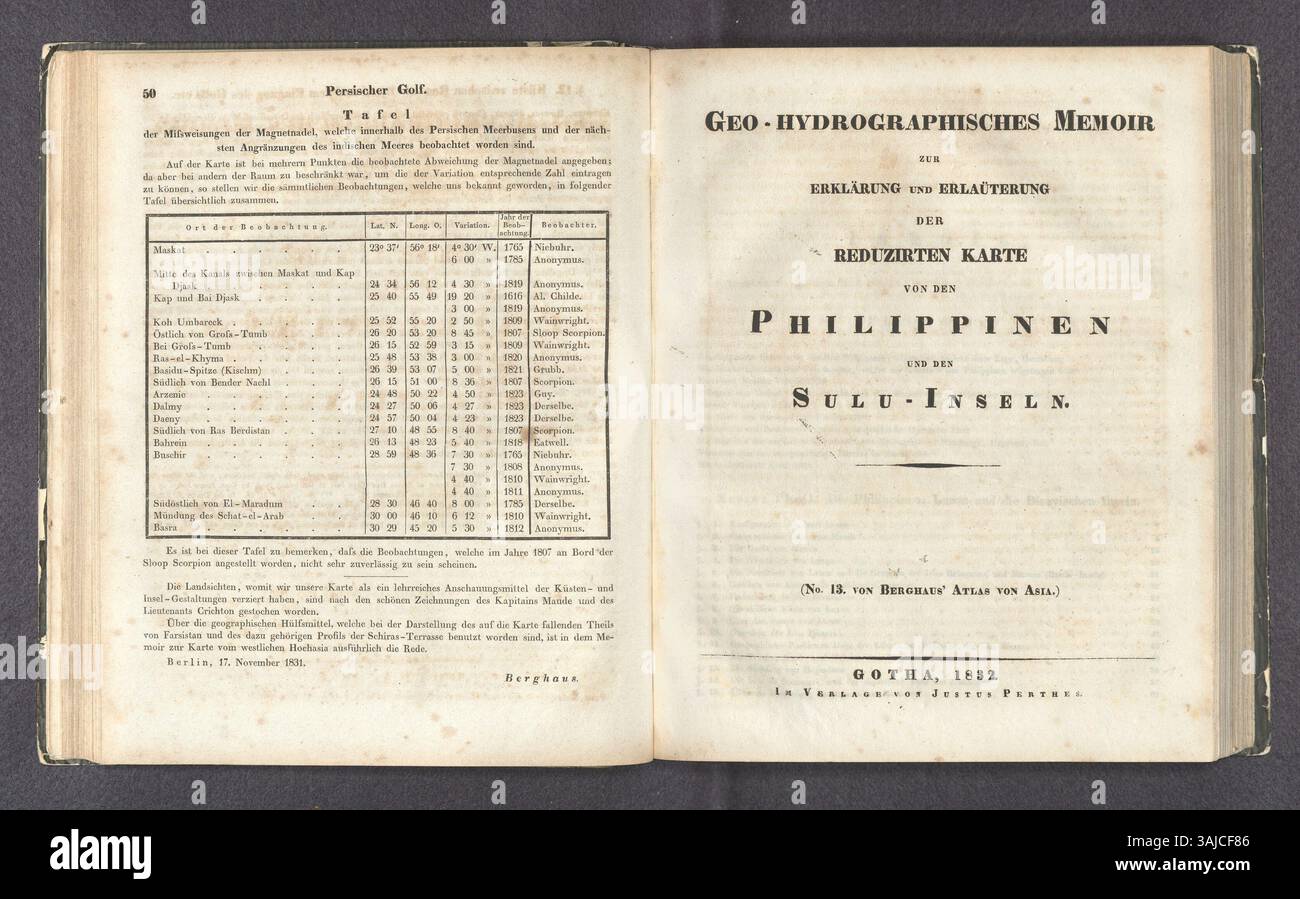 50 Persischer Golf.
Tafel
der Mifsweisungen der Magnetnadel, welche innerhalb des Persischen Meerbusens und der näch-
sten Angränzungen des indischen Meeres beobachtet worden sind.
Auf der Karte ist bei mehrern Punkten die beobachtete Abweichung der Magnetnadel angegeben;
da aber bei andern der Raum zu beschränkt war, um die der Variation entsprechende Zahl eintragen
zu können, so stellen wir die sämmtlichen Beobachtungen, welche uns bekannt geworden, in folgender
Tafel übersichtlich zusammen.
Ort der Beobachtung. Lat. N. Long. O. Variation. Jahr der Beob-achtung. Beobachter.
Maskat . . . . . 23° 37' 56° 18' 4° 30' W. 1765 Niebuhr.
6 00 » 1785 Anonymus.
Mitte des Kanals zwischen Maskat und Kap
Djask . . . . . 24 34 56 12 4 30 » 1819 Anonymus.
Kap und Bai Djask . . . . 25 40 55 49 19 20 » 1616 Al. Childe.
3 00 » 1819 Anonymus.
Koh Umbareck . . . . . 25 52 55 20 2 50 » 1809 Wainwright.
Östlich von Grofs-Tumb . . . 26 20 53 20 8 45 » 1807 Sloop Scorpion.
Bei Grofs-Tumb . . . . 26 15 52 59 3 15 » 1809 Wainwright.
Ras-el-Khyma . . . . . 25 48 53 38 3 00 » 1820 Anonymus.
Basidu-Spitze (Kischm) . . . 26 39 53 07 5 00 » 1821 Grubb.
Südlich von Bender Nachl . . . 26 15 51 00 8 36 » 1807 Scorpion.
Arzenie . . . . . 24 48 50 22 4 50 » 1823 Guy.
Dalmy . . . . . 24 27 50 06 4 27 » 1823 Derselbe.
Daeny . . . . . 24 57 50 04 4 23 » 1823 Derselbe.
Südlich von Ras Berdistan . . . 27 10 48 55 8 40 » 1807 Scorpion.
Bahrein . . . . . 26 13 48 23 5 40 » 1818 Eatwell.
Buschir . . . . . 28 59 48 36 7 30 » 1765 Niebuhr.
7 30 » 1808 Anonymus.
4 40 » 1810 Wainwright.
4 40 » 1811 Anonymus.
Südöstlich von El-Maradum . . 28 30 46 40 8 00 » 1785 Derselbe.
Mündung des Schat-el-Arab . . 30 00 46 10 6 12 » 1810 Wainwright.
Basra . . . . . 30 29 45 20 5 30 » 1812 Anonymus.
Es ist bei dieser Tafel zu bemerken, dafs die Beobachtungen, welche im Jahre 1807 an Bord der
Sloop Scorpion angestellt worden, nicht sehr zuverlässig zu sein scheinen.
Die Landsichten, womit wir unsere Karte als ein lehrreiches Anschauungsmittel der Küsten- und
Insel-Gestaltungen verziert haben, sind nach den schönen Zeichnungen des Kapitains Maude und des
Lieutenants Crichton gestochen worden.
Über die geographischen Hülfsmittel, welche bei der Darstellung des auf die Karte fallenden Theils
von Farsistan und des dazu gehörigen Profils der Schiras-Terrasse benutzt worden sind, ist in dem Me-
moir zur Karte vom westlichen Hochasia ausführlich die Rede.
Berlin, 17. November 1831.
Berghaus.
GEO-HYDROGRAPHISCHES MEMOIR
ZUR
ERKLÄRUNG UND ERLAÜTERUNG
DER
REDUZIRTEN KARTE
VON DEN
PHILIPPINEN
UND DEN
SULU-INSELN.
(No. 13. VON BERGHAUS' ATLAS VON ASIA.)
GOTHA, 1832.
IM VERLAGE VON JUSTUS PERTHES.
alamy
Image ID: 3AJCF86
www.alamy.com